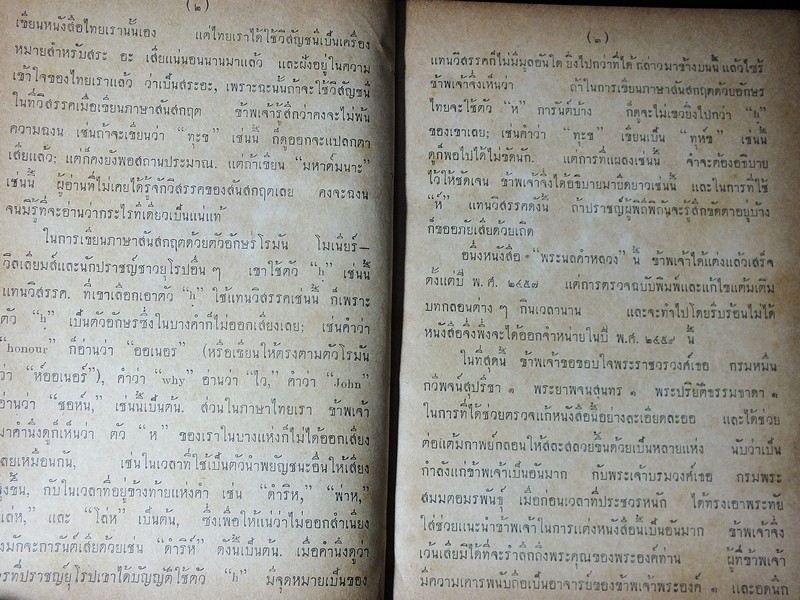 (๒)
เขียนหนังสือไทยเรานั้นเอง แต่ไทยเราได้ใช้วิสัญชนีเป็นเครื่อง
หมายสำหรับสระ อะ เสียแน่นอนนานมาแล้ว และฝังอยู่ในความ
เข้าใจของไทยเราแล้ว ว่าเป็นสระอะ, เพราะฉะนั้นถ้าจะใช้วิสัญชนี
ในที่วิสรรคเมื่อเขียนภาษาสันสกฤต ข้าพเจ้ารู้สึกว่าคงจะไม่พ้น
ความฉงน เช่นถ้าจะเขียนว่า “ทุะข” เช่นนี้ ก็ดูออกจะแปลกตา
เสียแล้ว; แต่ก็คงยังพอสถานประมาณ. แต่ถ้าเขียน “มหาต๎มนาะ”
เช่นนี้ ผู้อ่านที่ไม่เคยได้รู้จักวิสรรคของสันสกฤตเลย คงจะฉงน
จนมิรู้ที่จะอ่านว่ากระไรทีเดียวเป็นแน่แท้
ในการเขียนภาษาสันสกฤตด้วยตัวอักษรโรมัน โมเนียร์—
วิลเลียมส์และนักปราชญ์ชาวยุโรปอื่น ๆ เขาใช้ตัว “ḥ” เช่นนี้
แทนวิสรรค. ที่เขาเลือกเอาตัว “ḥ” ใช้แทนวิสรรคเช่นนี้ ก็เพราะ
ตัว “h” เป็นตัวอักษรซึ่งในบางคำก็ไม่ออกเสียงเลย; เช่นคำว่า
“honour” ก็อ่านว่า “ออเนอร” (หรือเขียนให้ตรงตามตัวโรมัน
ว่า “ห์ออเนอร์”), คำว่า “why” อ่านว่า “ไว,” คำว่า “John”
อ่านว่า “ชอห์น,” เช่นนี้เป็นต้น. ส่วนในภาษาไทยเรา ข้าพเจ้า
มาคำนึงดูก็เห็นว่า ตัว “ห” ของเราในบางแห่งก็ไม่ได้ออกเสียง
เลยเหมือนกัน, เช่นในเวลาที่ใช้เป็นตัวนำพยัญชนะอื่นให้เสียง
สูงขึ้น, กับในเวลาที่อยู่ข้างท้ายแห่งคำ เช่น “ดำริห,” “พ่าห,”
“เล่ห,” และ “โล่ห” เป็นต้น, ซึ่งเพื่อให้แน่ว่าไม่ออกสำเนียง
จึงมักจะการันต์เสียด้วยเช่น “ดำริห์” ดังนี้เป็นต้น. เมื่อคำนึงดูว่า
การที่ปราชญ์ยุโรปเขาได้บัญญัติใช้ตัว “ḥ” มีจุดหมายเป็นของ
(๓)
แทนวิสรรคก็ไม่มีมูลอันใด ยิ่งไปกว่าที่ได้กล่าวมาข้างบนนี้ แล้วไซร้
ข้าพเจ้าจึงเห็นว่า ถ้าในการเขียนภาษาสันสกฤตด้วยอักษร
ไทยจะใช้ตัว “ห” การันต์บ้าง ก็ดูจะไม่เขวยิ่งไปกว่า “ḥ”
ของเขาเลย; เช่นคำว่า “ทุะข” เขียนเป็น “ทุห์ข” เช่นนี้
ดูก็พอไปได้ไม่ขัดนัก. แต่การที่แผลงเช่นนี้ จำจะต้องอธิบาย
ไว้ให้ชัดเจน ข้าพเจ้าจึงได้อธิบายมายืดยาวเช่นนี้ และในการที่ใช้
“ห์” แทนวิสรรคดังนี้ ถ้าปราชญ์ผู้พิถีพิถันจะรู้สึกขัดตาอยู่บ้าง
ก็ขออภัยเสียด้วยเถิด
อนึ่งหนังสือ “พระนลคำหลวง” นี้ ข้าพเจ้าได้แต่งแล้วเสร็จ
ตั้งแต่ปี พ.ศ. ๒๔๕๗ แต่การตรวจฉบับพิมพ์และแก้ไขแต้มเติม
บทกลอนต่าง ๆ กินเวลานาน และจะทำไปโดยรีบร้อนไม่ได้
หนังสือจึ่งพึ่งจะได้ออกจำหน่ายในปี พ.ศ. ๒๔๕๙ นี้
ในที่สุดนี้ ข้าพเจ้าขอขอบใจพระราชวรวงศ์เธอ กรมหมื่น
กวีพจน์สุปรีชา ๑ พระยาพจนสุนทร ๑ พระปริยัติธรรมธาดา ๑
ในการที่ได้ช่วยตรวจแก้หนังสือนี้อย่างละเอียดละออ และได้ช่วย
ต่อแต้มกาพย์กลอนให้สละสลวยขึ้นด้วยเป็นหลายแห่ง นับว่าเป็น
กำลังแก่ข้าพเจ้าเป็นอันมาก กับพระเจ้าบรมวงศ์เธอ กรมพระ
สมมตอมรพันธุ์ เมื่อก่อนเวลาที่ประชวรหนัก ได้ทรงเอาพระทัย
ใส่ช่วยแนะนำข้าพเจ้าในการแต่งหนังสือนี้เป็นอันมาก ข้าพเจ้าจึ่ง
เว้นเสียมิได้ที่จะรำลึกถึงพระคุณของพระองค์ท่าน ผู้ที่ข้าพเจ้า
มีความเคารพนับถือเป็นอาจารย์ของข้าพเจ้าพระองค์ ๑ และอดนึก